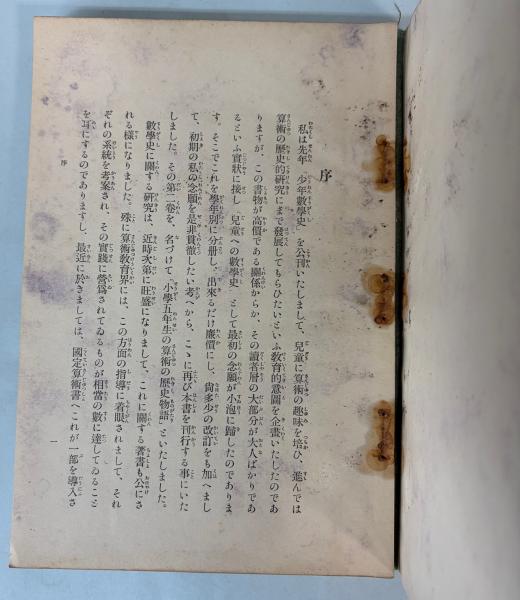 序
私は先年「少年數學史」を公刊いたしまして、兒童に算術の趣味を培ひ、進んでは
算術の歷史的硏究にまで發展してもらひたいといふ敎育的意圖を企畫いたしたのであ
りますが、この書物が高價である關係からか、その讀者層の大部分が大人ばかりであ
るといふ實狀に接し「兒童への數學史」として最初の念願が小泡に歸したのでありま
す。そこでこれを學年別に分册し、出來るだけ廉價にし、尙多少の改訂をも加へまし
て、初期の私の念願を是非貫徹したい考へから、こゝに再び本書を刊行する事にいた
しました。その第二卷を、名づけて「小學五年生の算術の歷史物語」といたしました。
數學史に關する硏究は、近時次第に旺盛になりまして、これに關する著書も公にさ
れる樣になりました。殊に算術敎育界には、この方面の指導に着眼されまして、それ
ぞれの系統を考案され、その實踐に營爲されてゐるものが相當の數に達してゐること
を耳にするのでありますし、最近に於きましては、國定算術書へこれが一部を導入さ
序
一